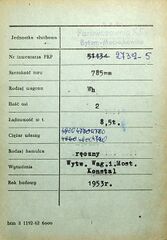 Jednostka służbowa
Nr inwentarza PKP 51434 2732-S
Szerokość toru 785mm
Rodzaj wagonu Wh
Ilość osi 2
Ładowność w t 8,5t.
Ciężar własny
Rodzaj hamulca ręczny
Wytwórnia Wytw. Wag. i Most. Konstal
Rok budowy 1953r.